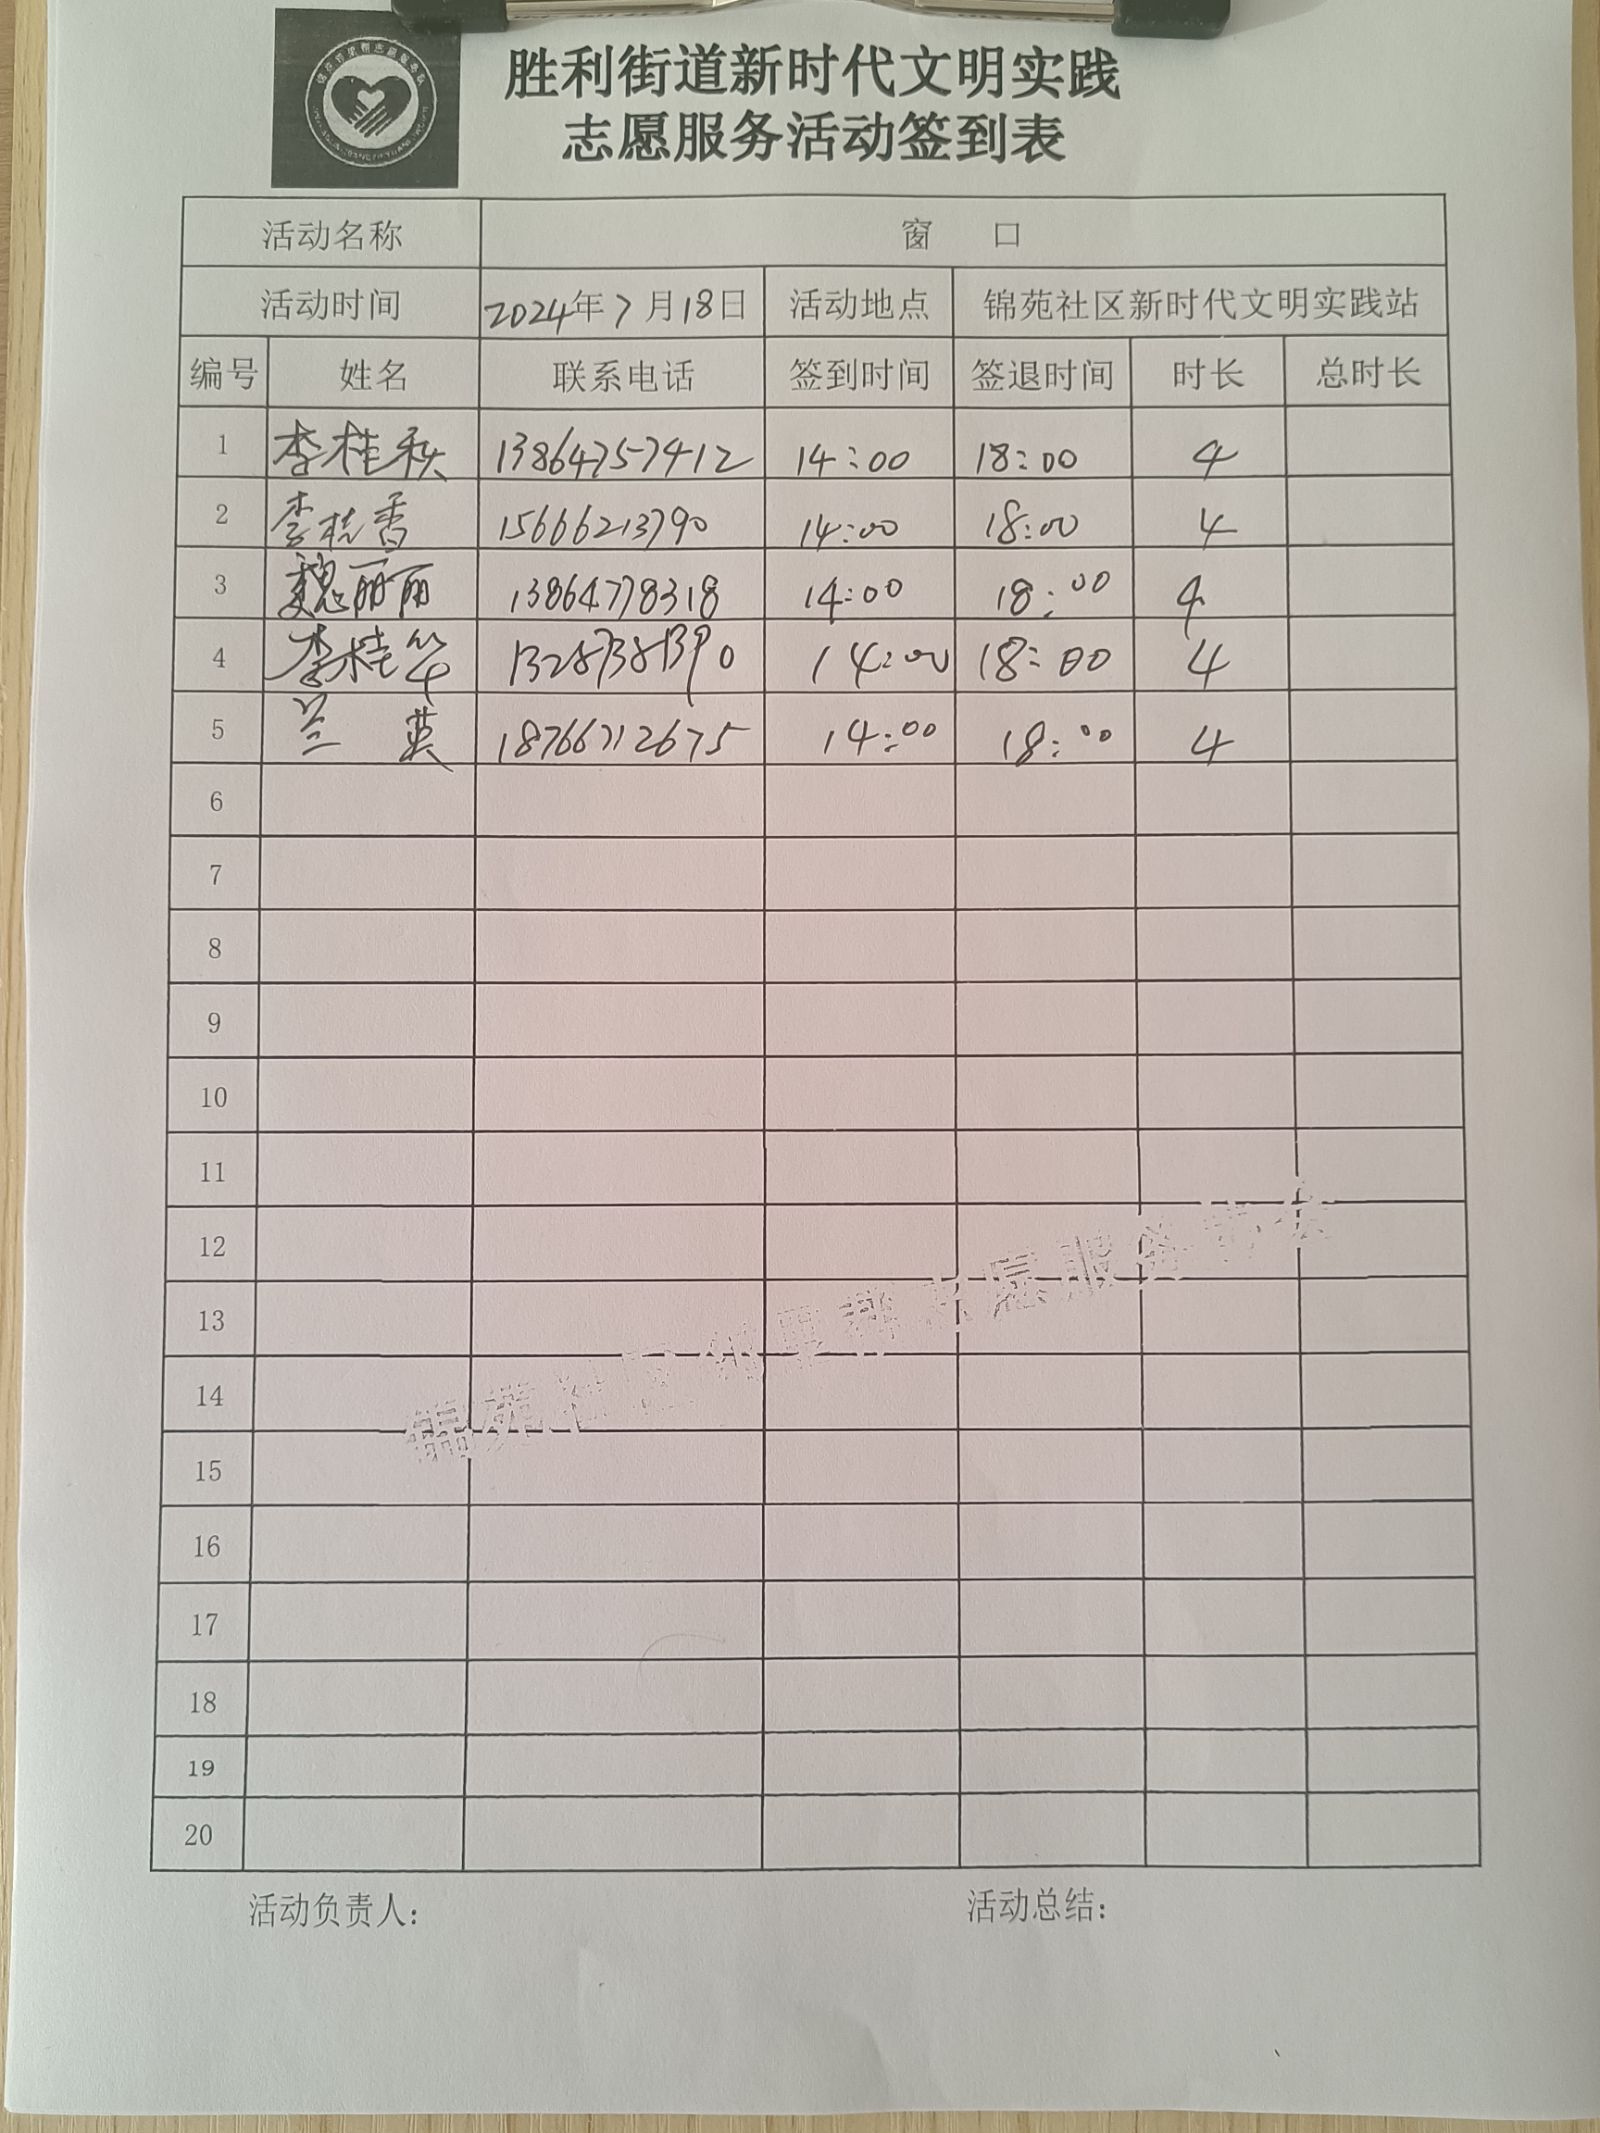 胜利街道新时代文明实践
志愿服务活动签到表
活动名称 窗 口
活动时间 2024年7月18日 活动地点 锦苑社区新时代文明实践站
编号 姓名 联系电话 签到时间 签退时间 时长 总时长
1 李桂秋 13864757412 14:00 18:00 4
2 李桂香 15666213790 14:00 18:00 4
3 魏丽丽 13864778318 14:00 18:00 4
4 李桂华 14:00 18:00 4
5 兰英 18766712675 14:00 18:00 4
6
7
8
9
10
11
12
13
14
15
16
17
18
19
20
锦苑社区邻里帮志愿服务
活动负责人: 活动总结: